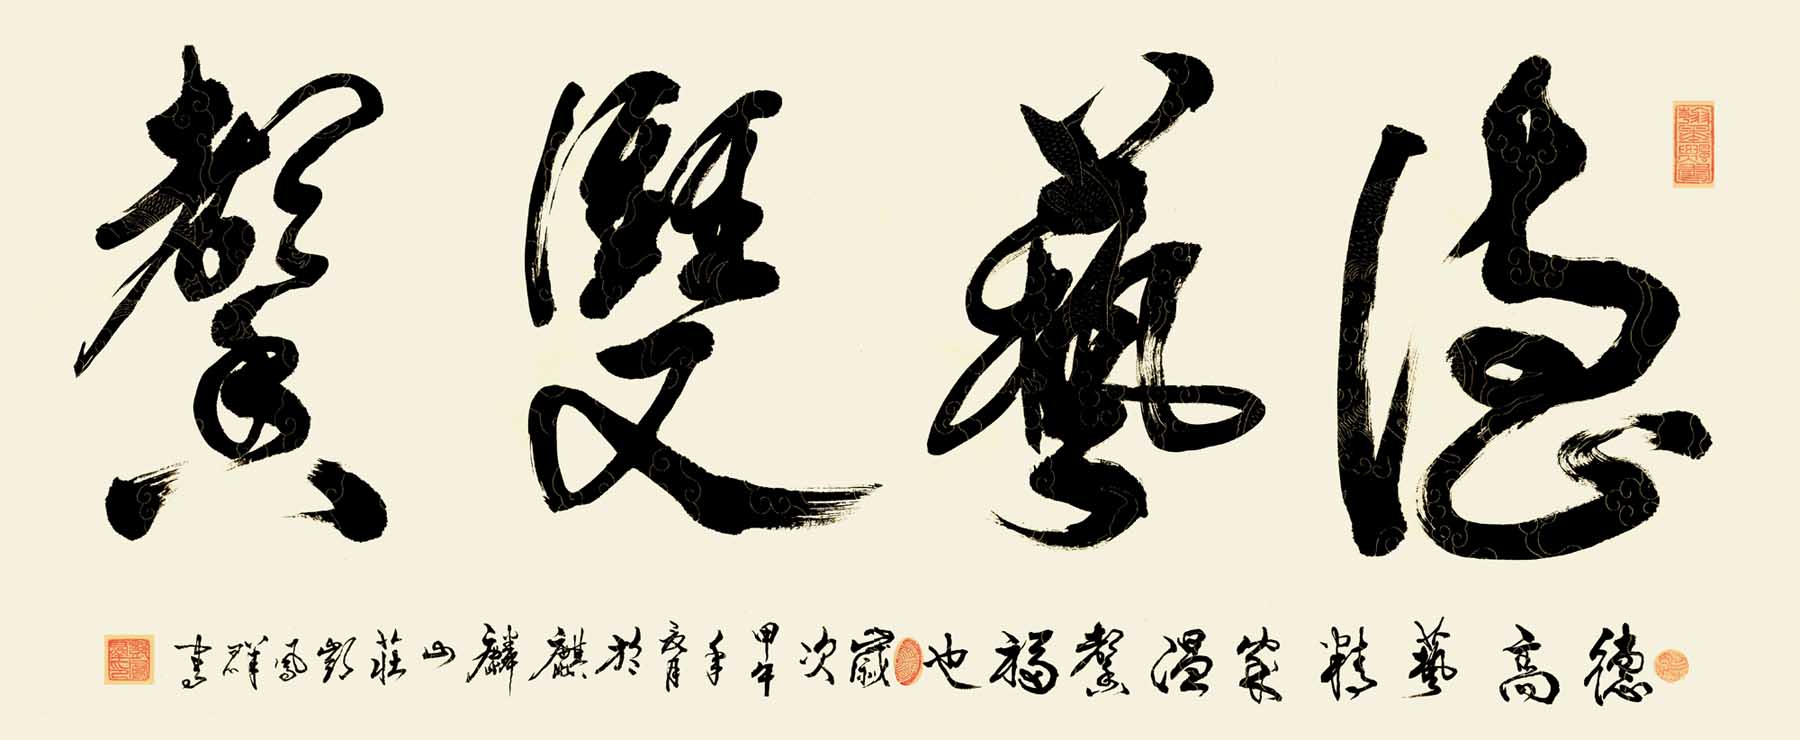 德藝雙馨
德高藝精家溫馨福也歲次甲午年夏月於麒麟山莊鳳群書